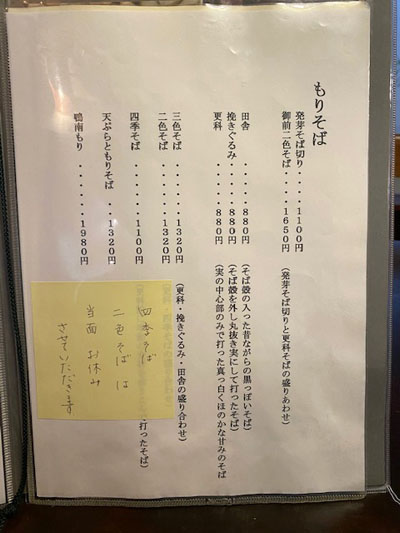 もりそば
発芽そば切り・・・・1100円
御前二色そば・・・・1650円 (発芽そば切りと更科そばの盛りあわせ)
田舎・・・・・880円 (そば殻の入った昔ながらの黒っぽいそば)
挽きぐるみ・・・・880円 (そば殻を外し丸抜き実にして打ったそば)
更科・・・・・880円 (実の中心部のみで打った真っ白くほのかな甘みのそば
三色そば・・・・・・1320円 (更科・挽きぐるみ・田舎の盛り合わせ)
二色そば・・・・・・1320円
四季そば・・・・・・1100円 打ったそば)
天ぷらともりそば・・1320円
鴨南もり・・・・・・1980円
四季そば
二色そば は
当面 お休み
させていただきます